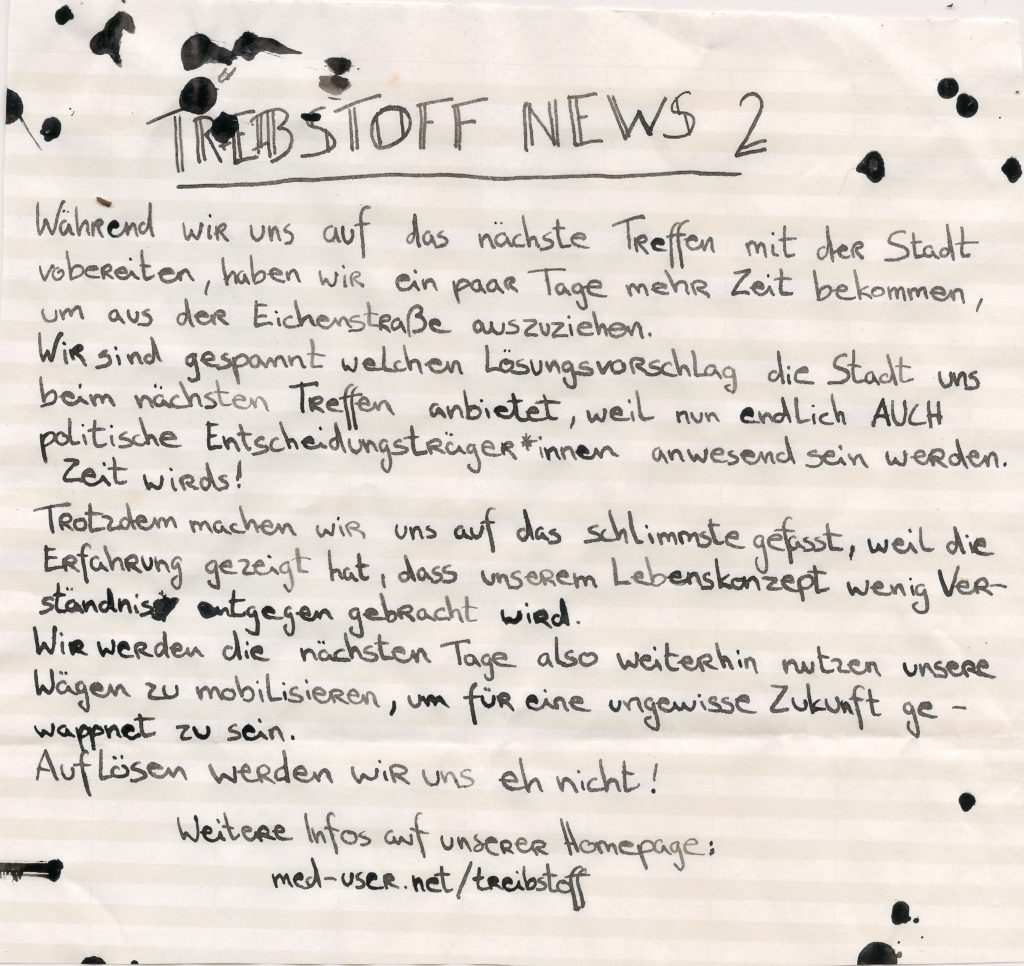 TREIBSTOFF NEWS 2
Während wir uns auf das nächste Treffen mit der Stadt
vobereiten, haben wir ein paar Tage mehr Zeit bekommen,
um aus der Eichenstraße auszuziehen.
Wir sind gespannt welchen Lösungsvorschlag die Stadt uns
beim nächsten Treffen anbietet, weil nun endlich AUCH
politische Entscheidungsträger*innen anwesend sein werden.
Zeit wirds!
Trotzdem machen wir uns auf das schlimmste gefasst, weil die
Erfahrung gezeigt hat, dass unserem Lebenskonzept wenig Ver-
ständnis entgegen gebracht wird.
Wir werden die nächsten Tage also weiterhin nutzen unsere
Wägen zu mobilisieren, um für eine ungewisse Zukunft ge-
wappnet zu sein.
Auflösen werden wir uns eh nicht!
Weitere Infos auf unserer Homepage:
med-user.net/treibstoff